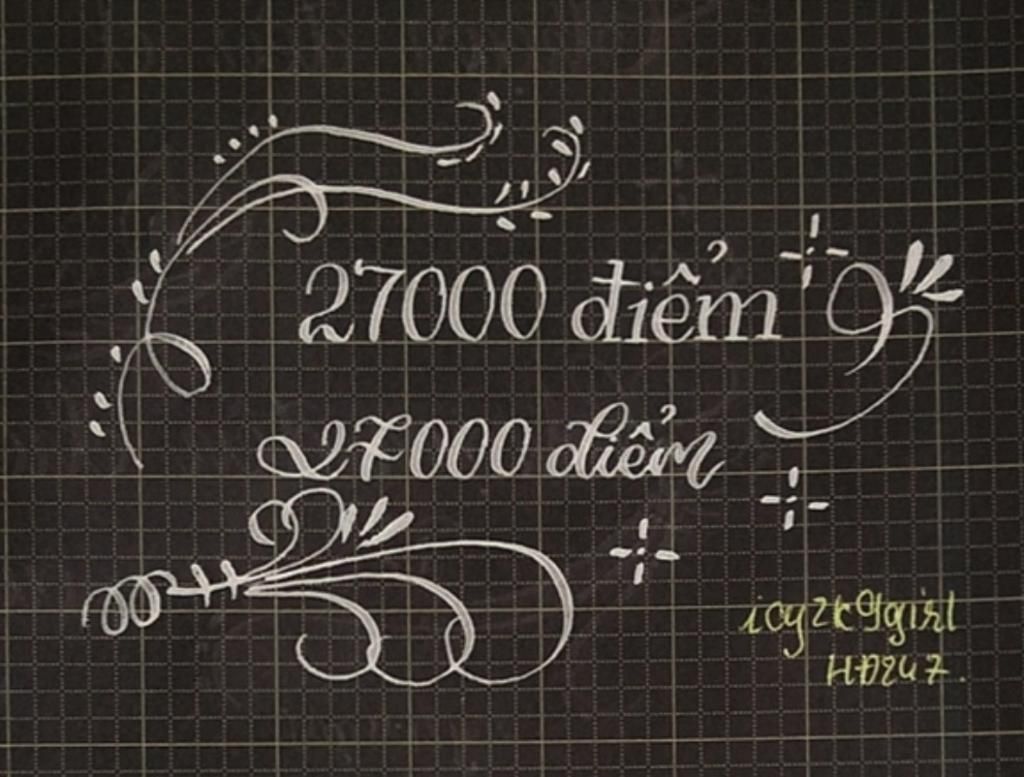 27000 điểm
27000 điểm
icy2k9girl
HĐ247.